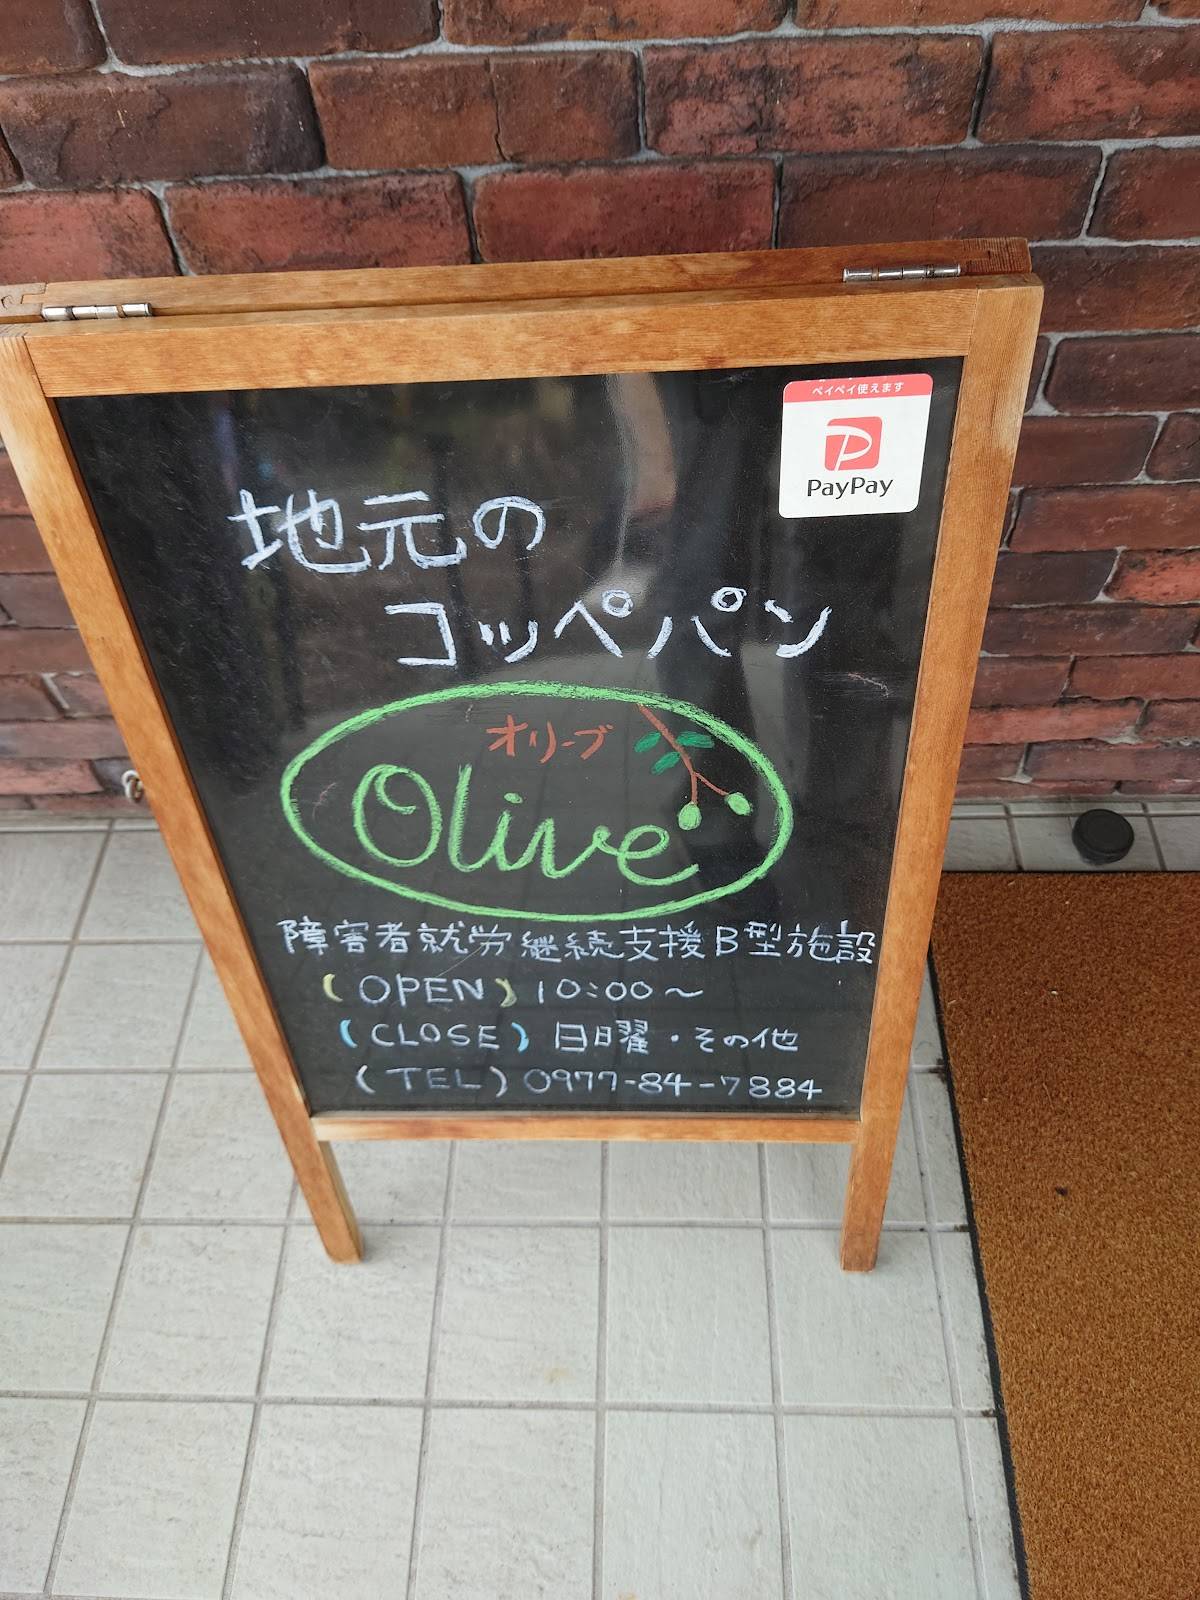 ペイペイ使えます
PayPay
地元の
コッペパン
オリーブ
Olive
障害者就労継続支援B型施設
(OPEN) 10:00〜
(CLOSE) 日曜・その他
(TEL) 0977-84-7884